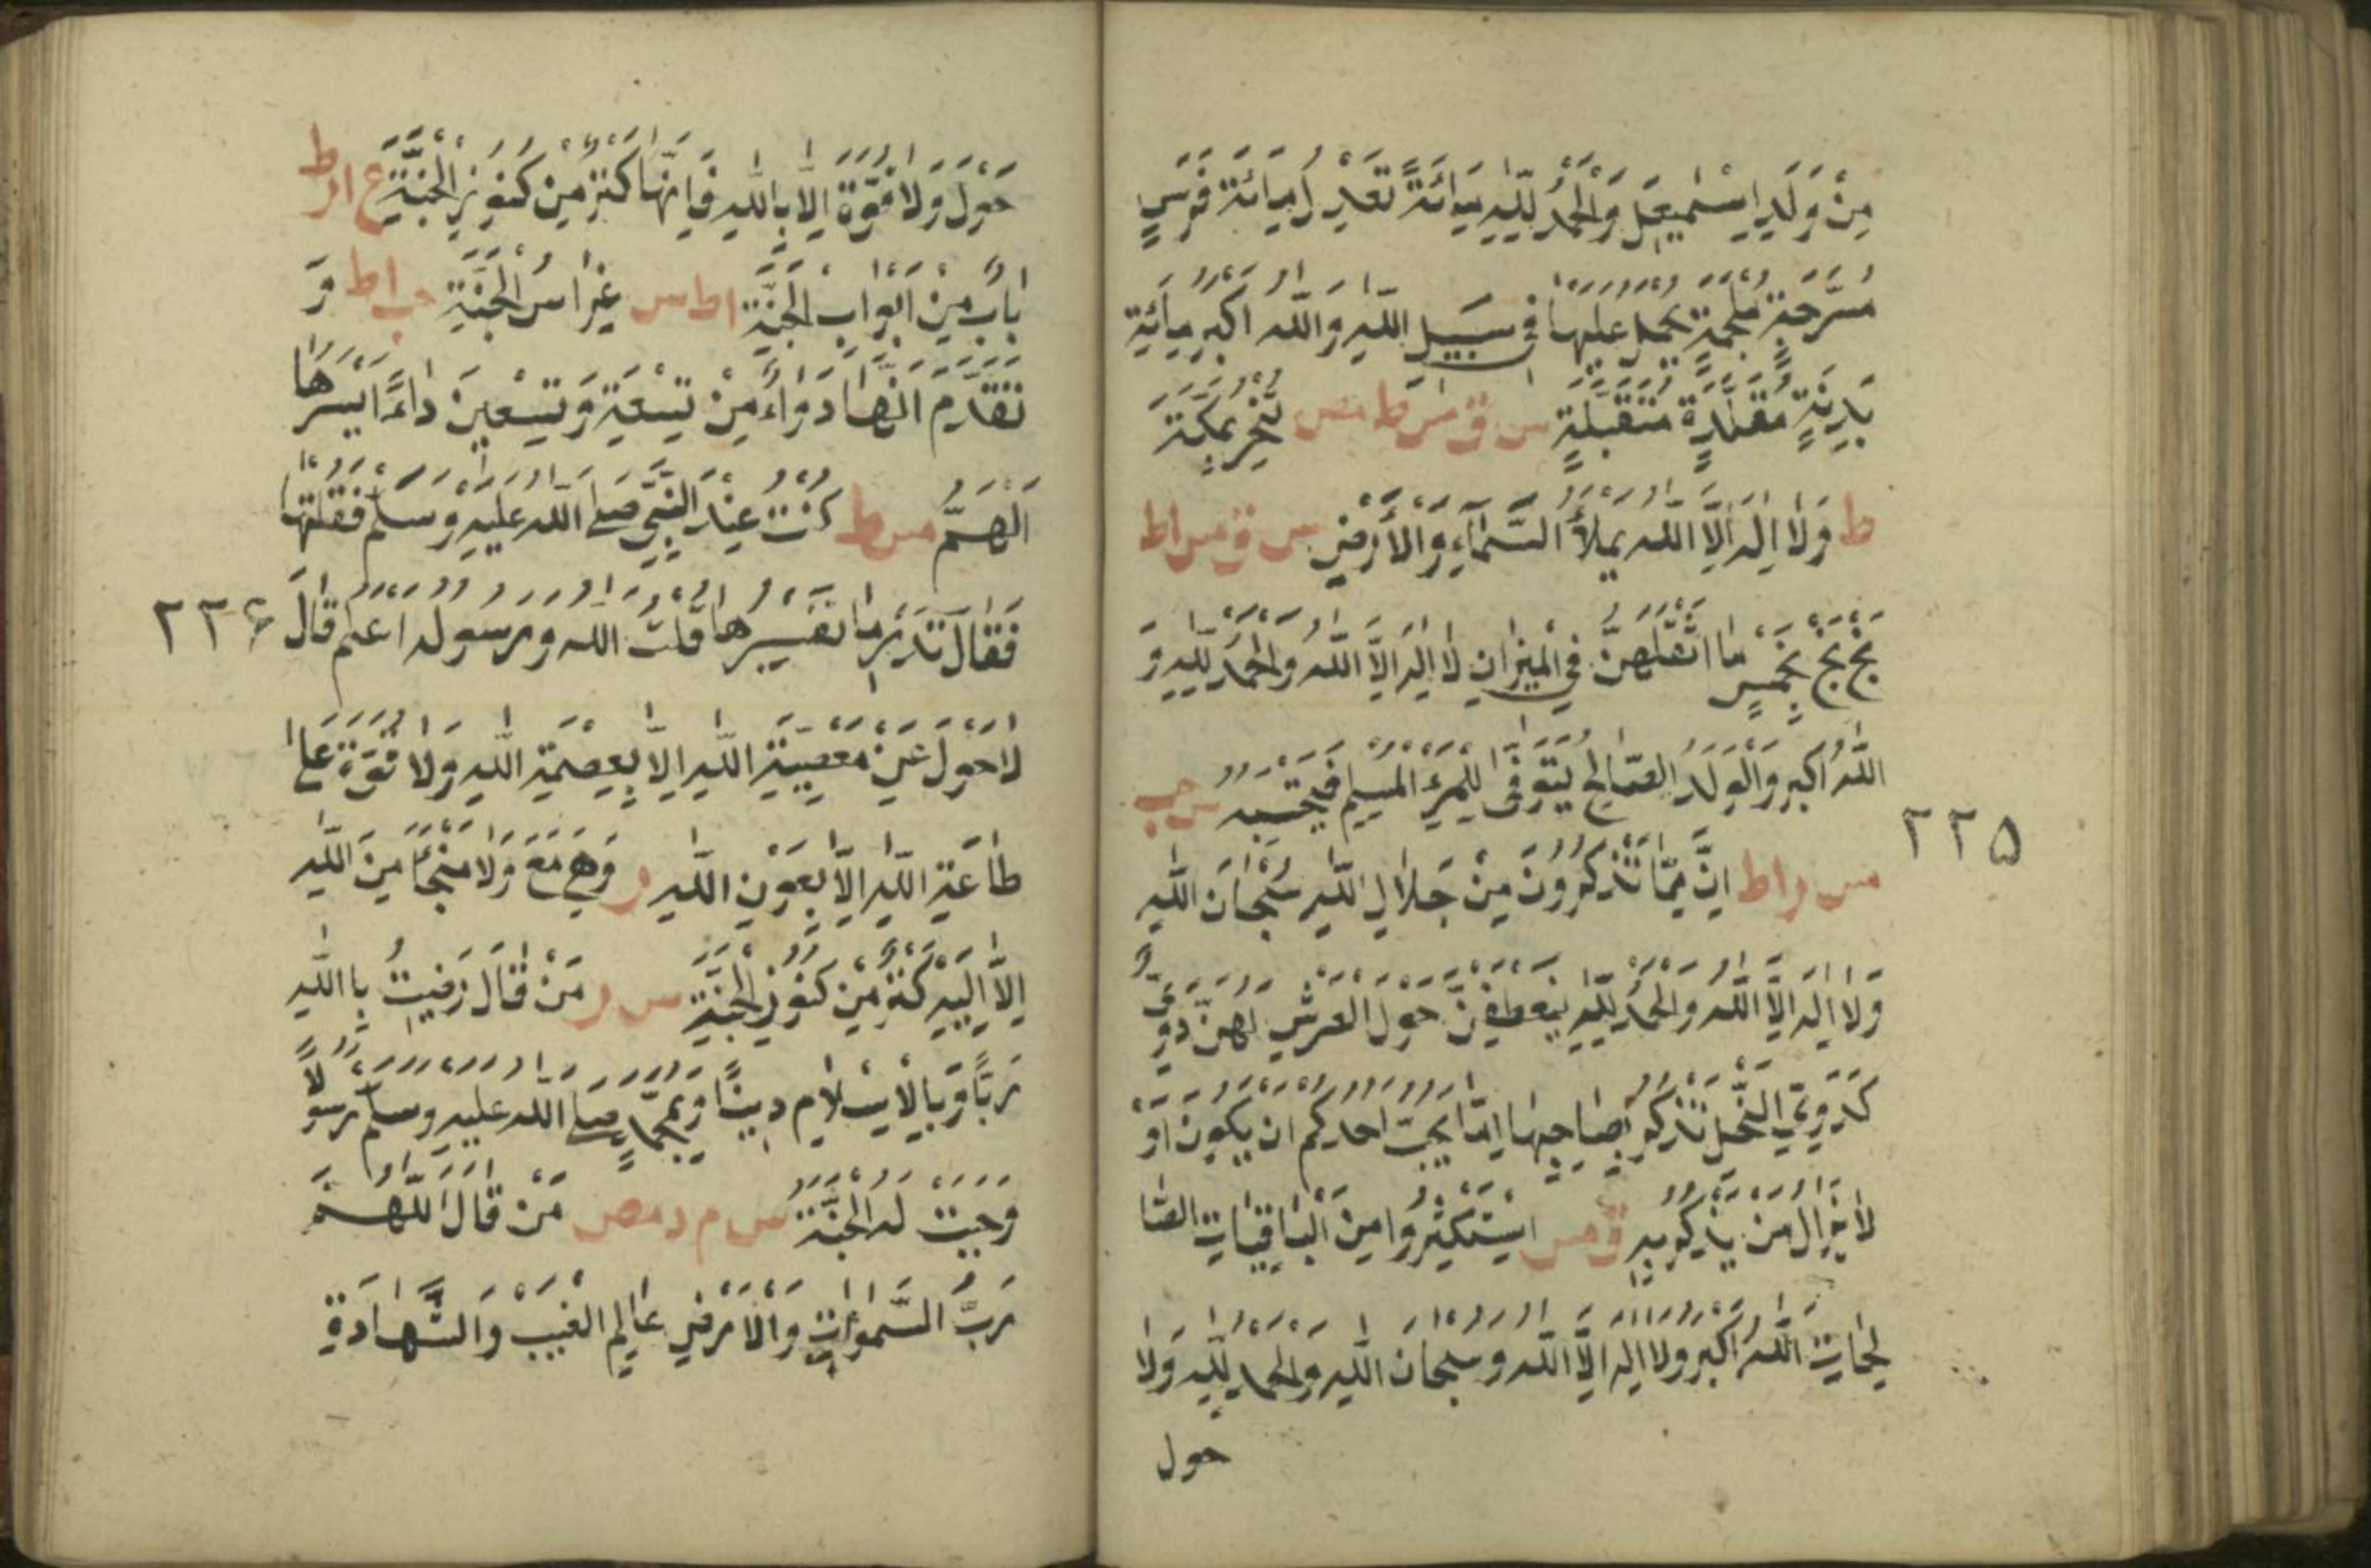 مِنْ وَلَدِ اِسْمٰعِيلَ وَالْحَمْدُ لِلّٰهِ مِائَةً تَعْدِلُ مِائَةَ فَرَسٍ
مُسْرَجَةٍ مُلْجَمَةٍ يُحْمَلُ عَلَيْهَا فِي سَبِيلِ اللّٰهِ وَاللّٰهُ اَكْبَرُ مِائَةً
بَدَنَةٍ مُقَلَّدَةٍ مُتَقَبَّلَةٍ س ق مس ط مص تُنْحَرُ بِمَكَّةَ
ط وَلَا اِلٰهَ اِلَّا اللّٰهُ يَمْلَأُ السَّمَاءِ وَالْاَرْضِ س ق مس ا ط
بَخٍ بَخٍ بِخَمْسٍ مَا اَثْقَلَهُنَّ فِي الْمِيزَانِ لَا اِلٰهَ اِلَّا اللّٰهُ وَالْحَمْدُ لِلّٰهِ وَ
اللّٰهُ اَكْبَرُ وَالْوَلَدُ الصَّالِحُ يُتَوَفّٰى لِلْمَرْءِ الْمُسْلِمِ فَيَحْتَسِبُهُ س حب
٢٢٥
مس ر ا ط اِنَّ مِمَّا تَذْكُرُونَ مِنْ جَلَالِ اللّٰهِ سُبْحَانَ اللّٰهِ
وَلَا اِلٰهَ اِلَّا اللّٰهُ وَالْحَمْدُ لِلّٰهِ يَنْعَطِفْنَ حَوْلَ الْعَرْشِ لَهُنَّ دَوِيٌّ
كَدَوِيِّ النَّحْلِ تُذَكِّرُ بِصَاحِبِهَا اَمَا يُحِبُّ اَحَدُكُمْ اَنْ يَكُونَ اَوْ
لَا يَزَالَ مَنْ يُذَكِّرُ بِهِ ق مس اِسْتَكْثِرُوا مِنَ الْبَاقِيَاتِ الصَّا
لِحَاتِ اللّٰهُ اَكْبَرُ وَلَا اِلٰهَ اِلَّا اللّٰهُ وَسُبْحَانَ اللّٰهِ وَالْحَمْدُ لِلّٰهِ وَلَا
حول
حَوْلَ وَلَا قُوَّةَ اِلَّا بِاللّٰهِ فَاِنَّهَا كَنْزٌ مِنْ كُنُوزِ الْجَنَّةِ ع ا ر ط
بَابٌ مِنْ اَبْوَابِ الْجَنَّةِ ا ط س غِرَاسُ الْجَنَّةِ حب ا ط وَ
تَقَدَّمَ اَنَّهَا دَوَاءٌ مِنْ تِسْعَةٍ وَتِسْعِينَ دَاءً اَيْسَرُهَا
اَلْهَمُّ مس ط كُنْتُ عِنْدَ النَّبِيِّ صَلَّى اللّٰهُ عَلَيْهِ وَسَلَّمَ فَقُلْتُهَا
فَقَالَ تَدْرِي مَا تَفْسِيرُهَا قُلْتُ اللّٰهُ وَرَسُولُهُ اَعْلَمُ قَالَ
٢٢۶
لَا حَوْلَ عَنْ مَعْصِيَةِ اللّٰهِ اِلَّا بِعِصْمَةِ اللّٰهِ وَلَا قُوَّةَ عَلٰى
طَاعَةِ اللّٰهِ اِلَّا بِعَوْنِ اللّٰهِ ر وَهِيَ مَعَ وَلَا مَنْجَأَ مِنَ اللّٰهِ
اِلَّا اِلَيْهِ كَنْزٌ مِنْ كُنُوزِ الْجَنَّةِ س ر مَنْ قَالَ رَضِيتُ بِاللّٰهِ
رَبًّا وَبِالْاِسْلَامِ دِينًا وَبِمُحَمَّدٍ صَلَّى اللّٰهُ عَلَيْهِ وَسَلَّمَ رَسُولًا
وَجَبَتْ لَهُ الْجَنَّةُ س م د مص مَنْ قَالَ اللّٰهُمَّ
رَبَّ السَّمٰوَاتِ وَالْاَرْضِ عَالِمَ الْغَيْبِ وَالشَّهَادَةِ